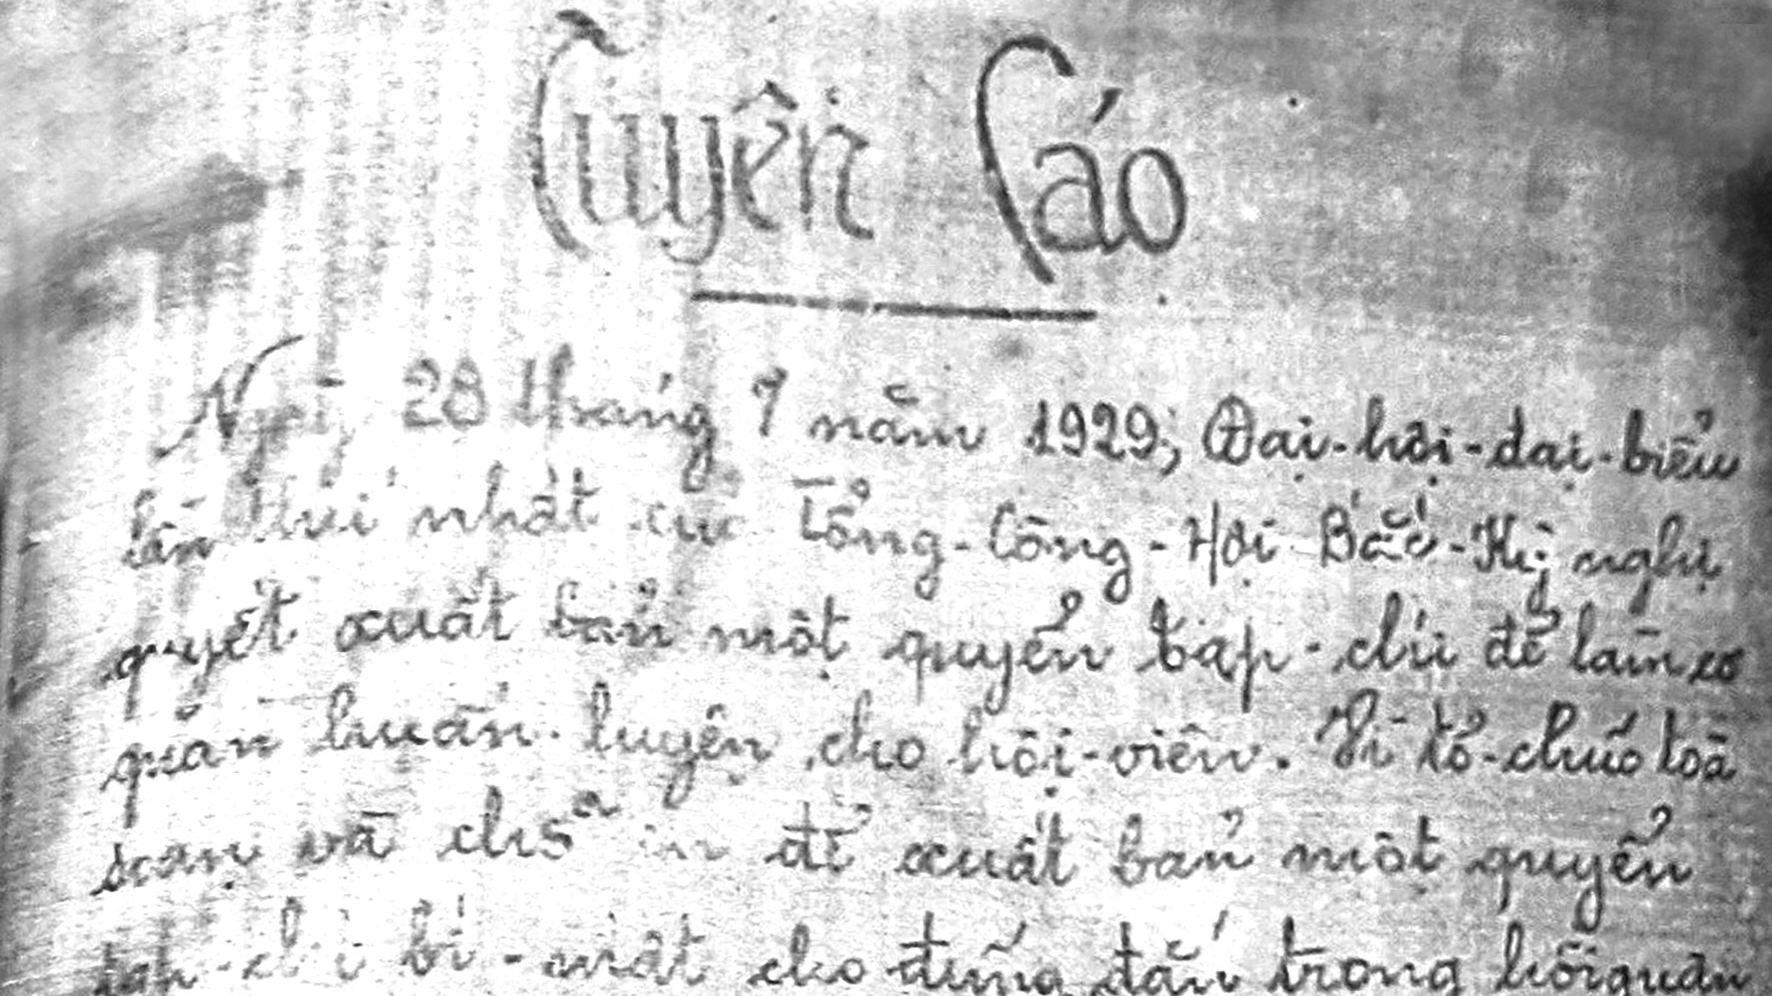 Tuyên Cáo
Ngày 28 tháng 7 năm 1929, Đại-hội-đại-biểu
lần thứ nhất của Tổng-Công-Hội Bắc-Kỳ nghị
quyết xuất bản một quyển tạp-chí để làm cơ
quan huấn-luyện cho hội-viên. Vì tổ-chức toà
soạn và chỗ in để xuất bản một quyển
tạp-chí bí-mật cho đúng đắn trong hồi quân